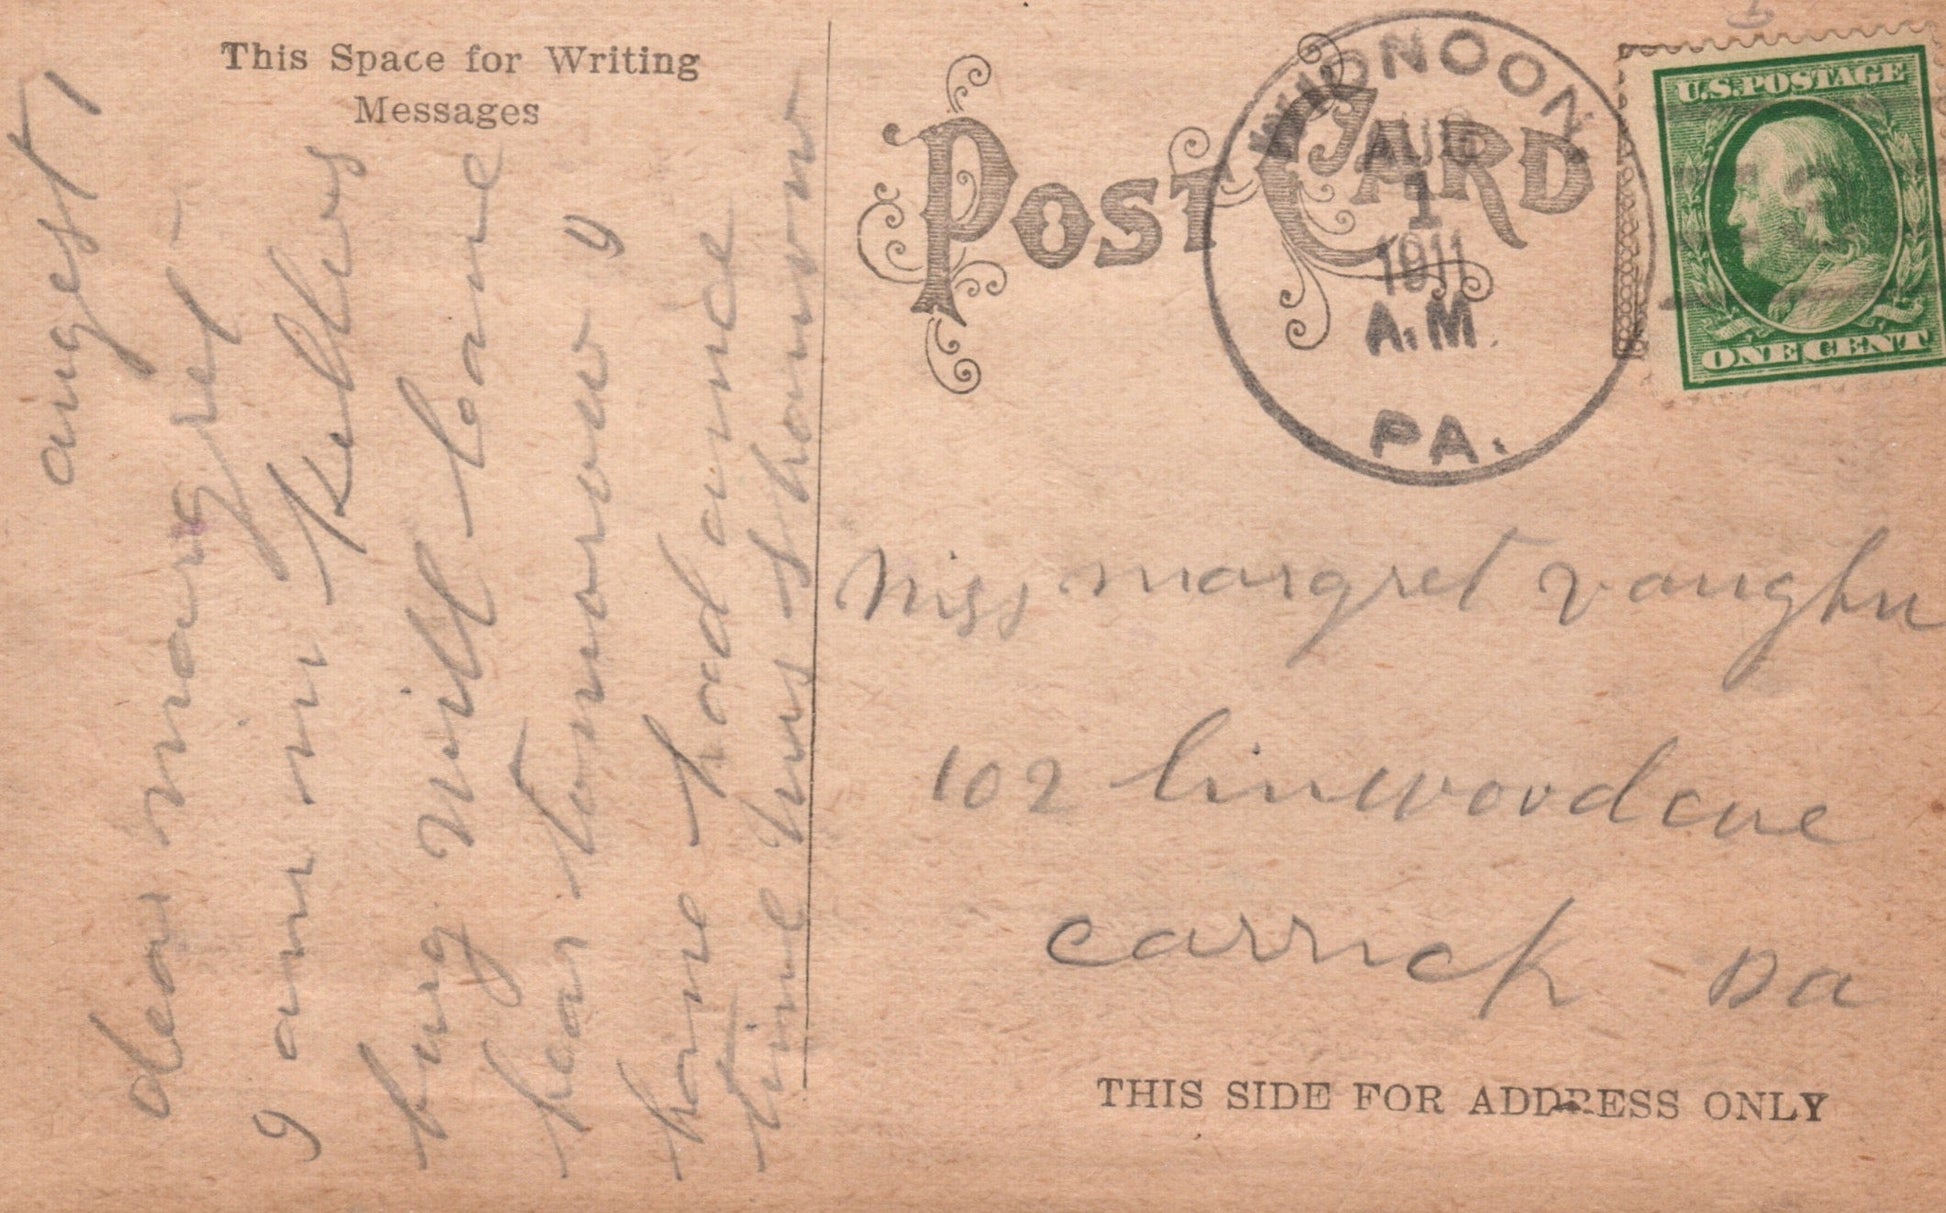 This Space for Writing
Messages
POST CARD
WIDNOON
AUG
1
1911
A.M.
PA.
U.S. POSTAGE
ONE CENT
angest 1
dear margret
I am in Kellers
burg will come
hear tomorow I
have had a nice
time hus shanon
Miss margret vaughn
102 linwood ave
carrick Pa
THIS SIDE FOR ADDRESS ONLY